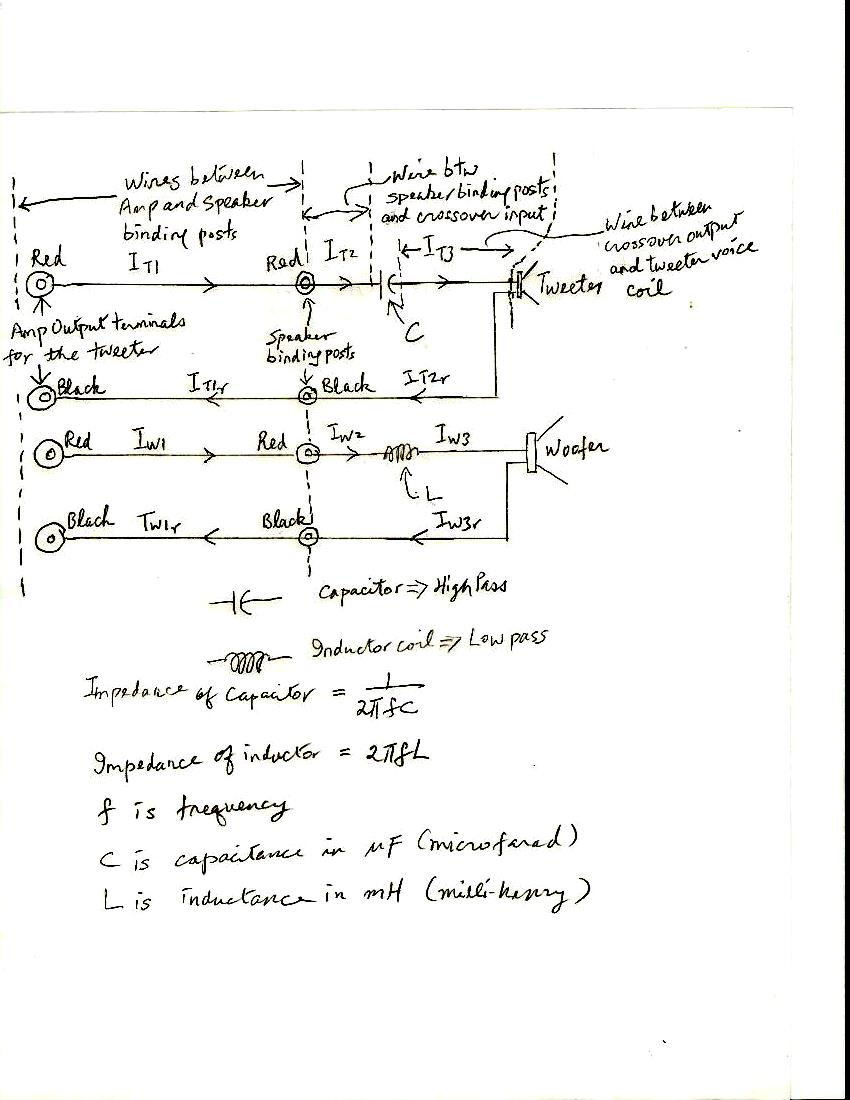 Wires between
Amp and Speaker
binding posts
Wire btw
speaker binding posts
and crossover input
Wire between
crossover output
and tweeter voice
coil
Red
IT1
Red
IT2
IT3
Tweeter
Amp Output terminals
for the tweeter
Speaker
binding posts
C
Black
IT1r
Black
IT2r
Red
IW1
Red
IW2
IW3
Woofer
L
Black
TW1r
Black
IW3r
Capacitor => High Pass
Inductor coil => Low pass
Impedance of Capacitor = 1/2πfC
Impedance of inductor = 2πfL
f is frequency
C is capacitance in µF (microfarad)
L is inductance in mH (milli-henry)